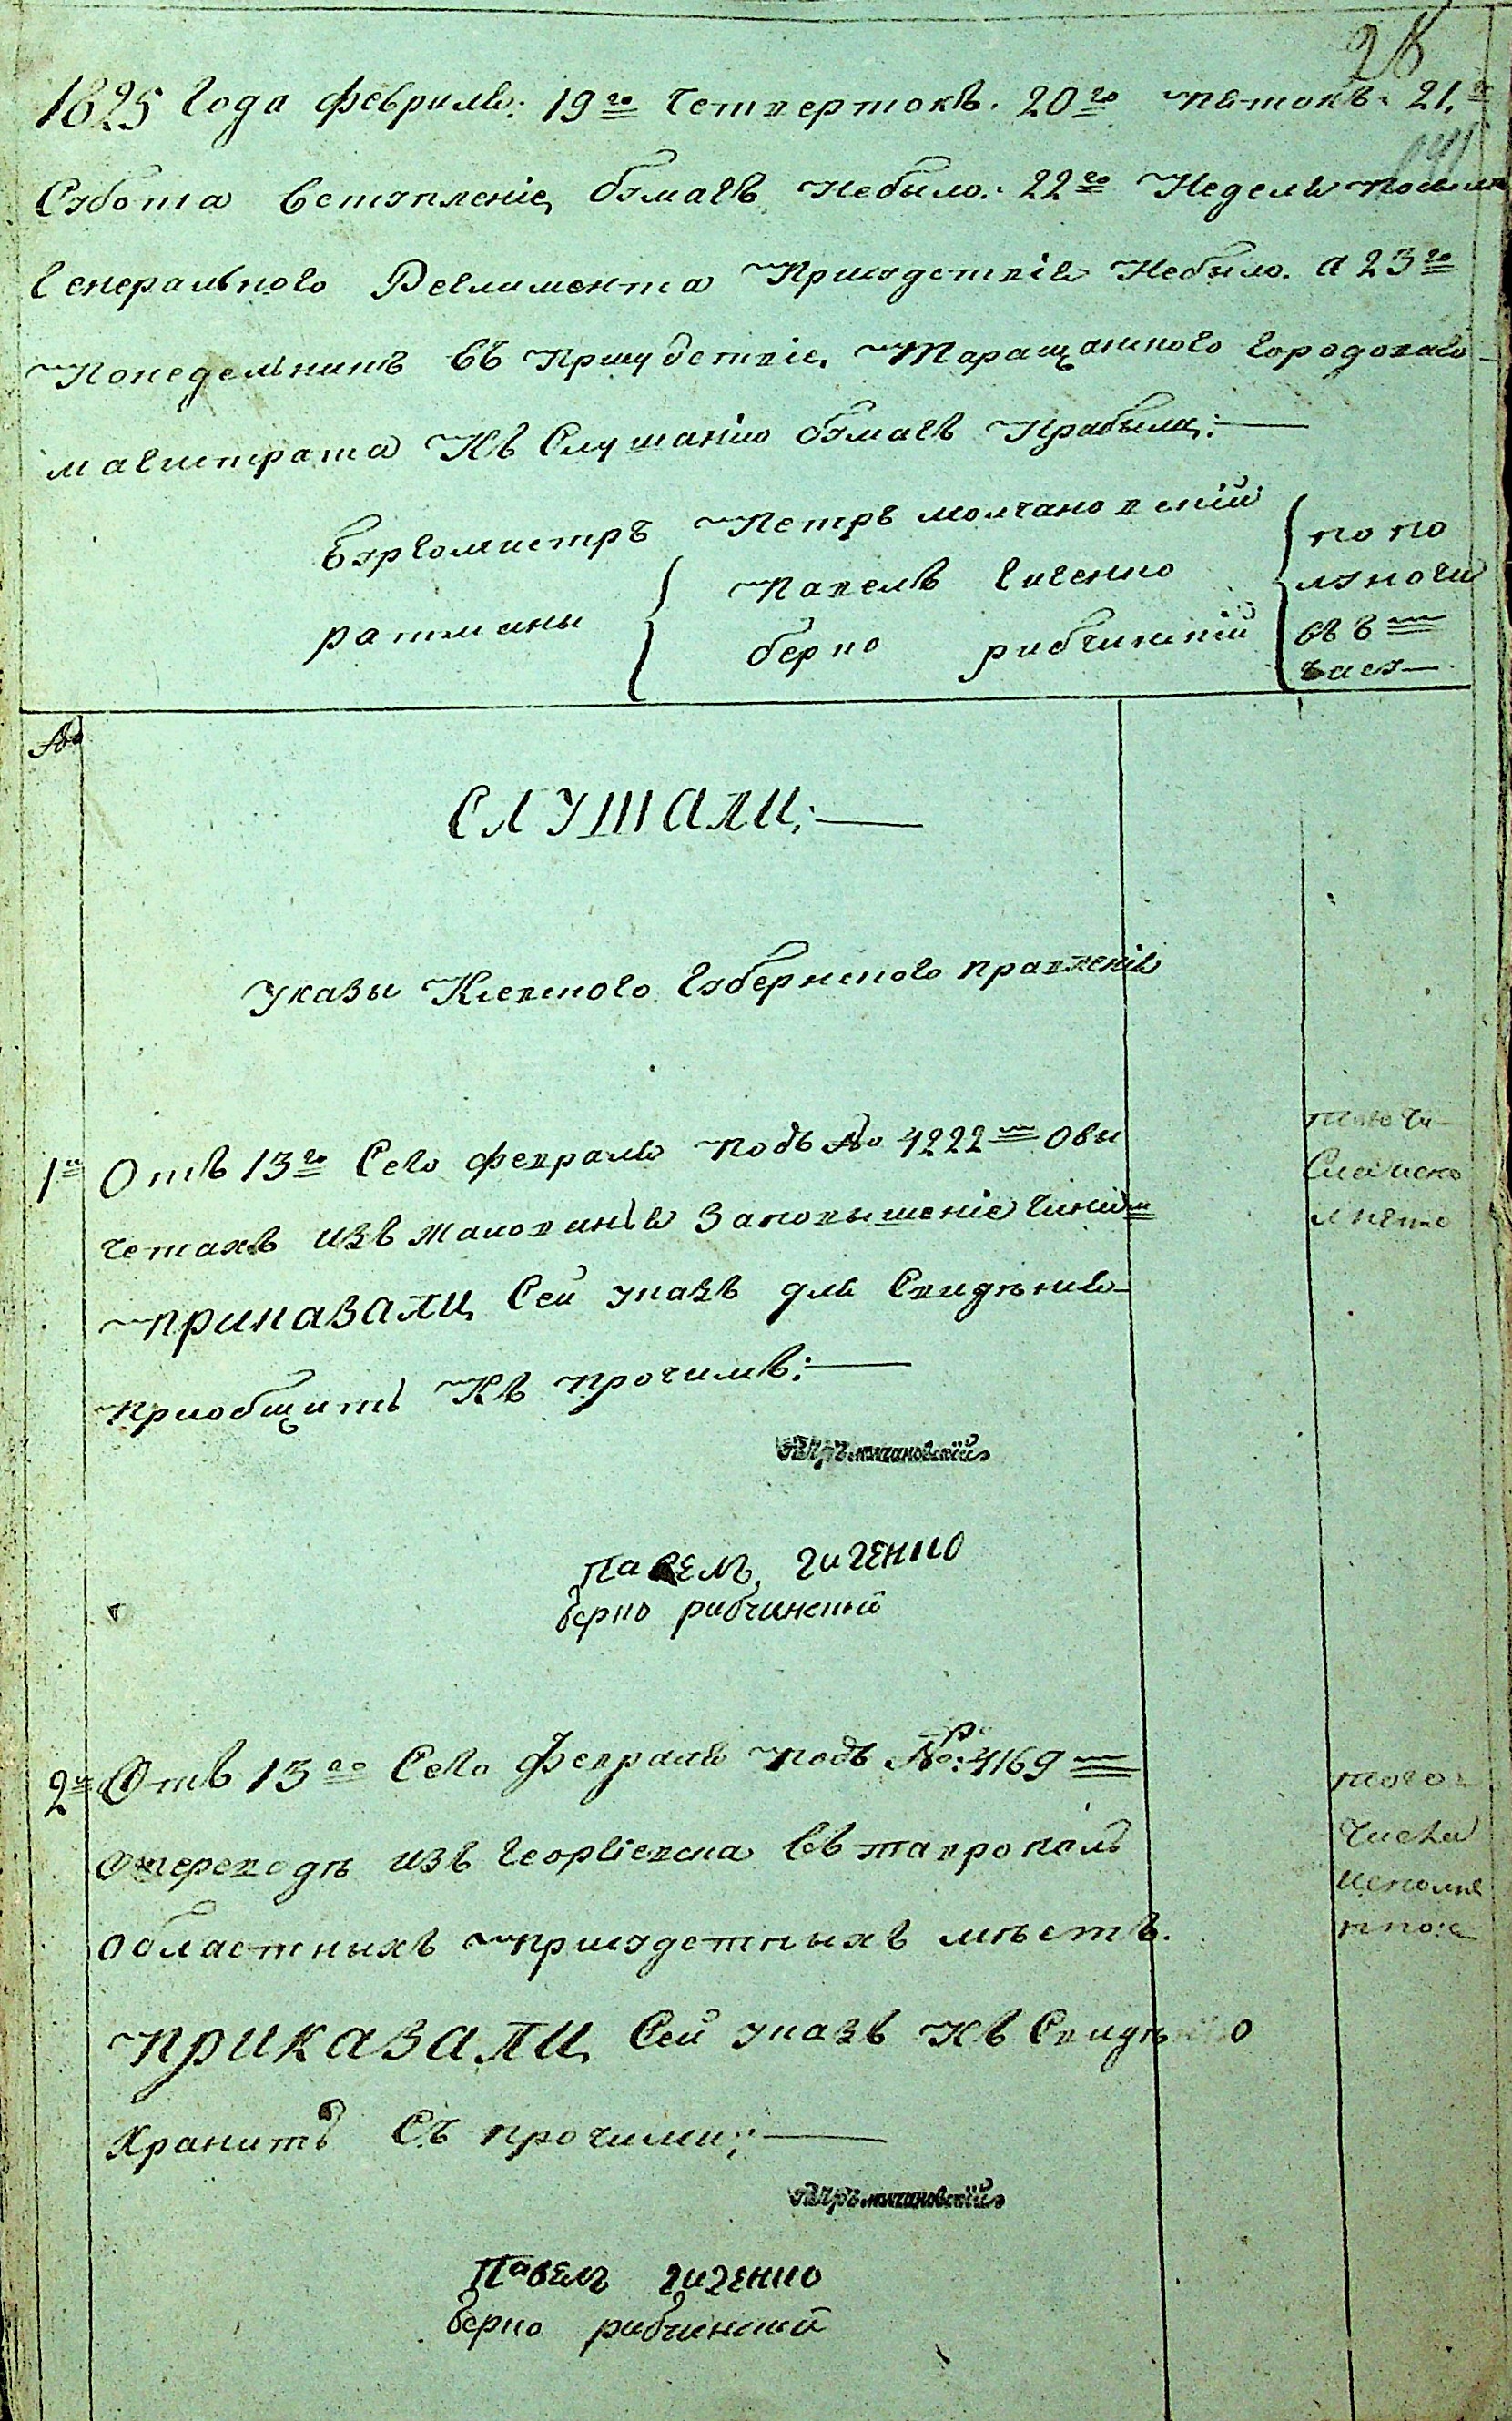 28
1825 года февраля: 19го Четвертокъ. 20го пятокъ. 21го
Субота вступленіе бумагъ небыло: 22го Неделя посилѣ
Генеральнаго Регламента Присудствія Небыло. а 23го
Понедельникъ въ Присудствіе Таращанского городоваго
магистрата Къ Слушанію бумагъ Прибыли:
Бургомистръ Петръ молчановскій
ратманы Павелъ гиченко
берко рибчинскій
по по
луночи
въ 8м
часу
№
СЛУШАЛИ:
Указы Киевского Губернского правленія
1й Отъ 13го Сего февраля подъ № 4222мОви
четахъ изъ жалованья Заповышеніе чини
ПРИКАЗАЛИ Сей указъ для Сведѣнія
приобщить Къ прочимъ:
того чи
Сла испо
лнено
Петръ молчановскій
Павелъ гиченко
берко рибчинский
2й Отъ 13го Сего Февраля подъ №: 4169м
Опереводѣ изъ Георгіевска въ таврополь
областныхъ присудственыхъ мѣстъ.
ПРИКАЗАЛИ Сей указъ Къ Сведѣнію
Хранить Съ прочими:
того
числа
исполне
но
Петръ молчановскій
Павелъ гиченко
берко рибчинский